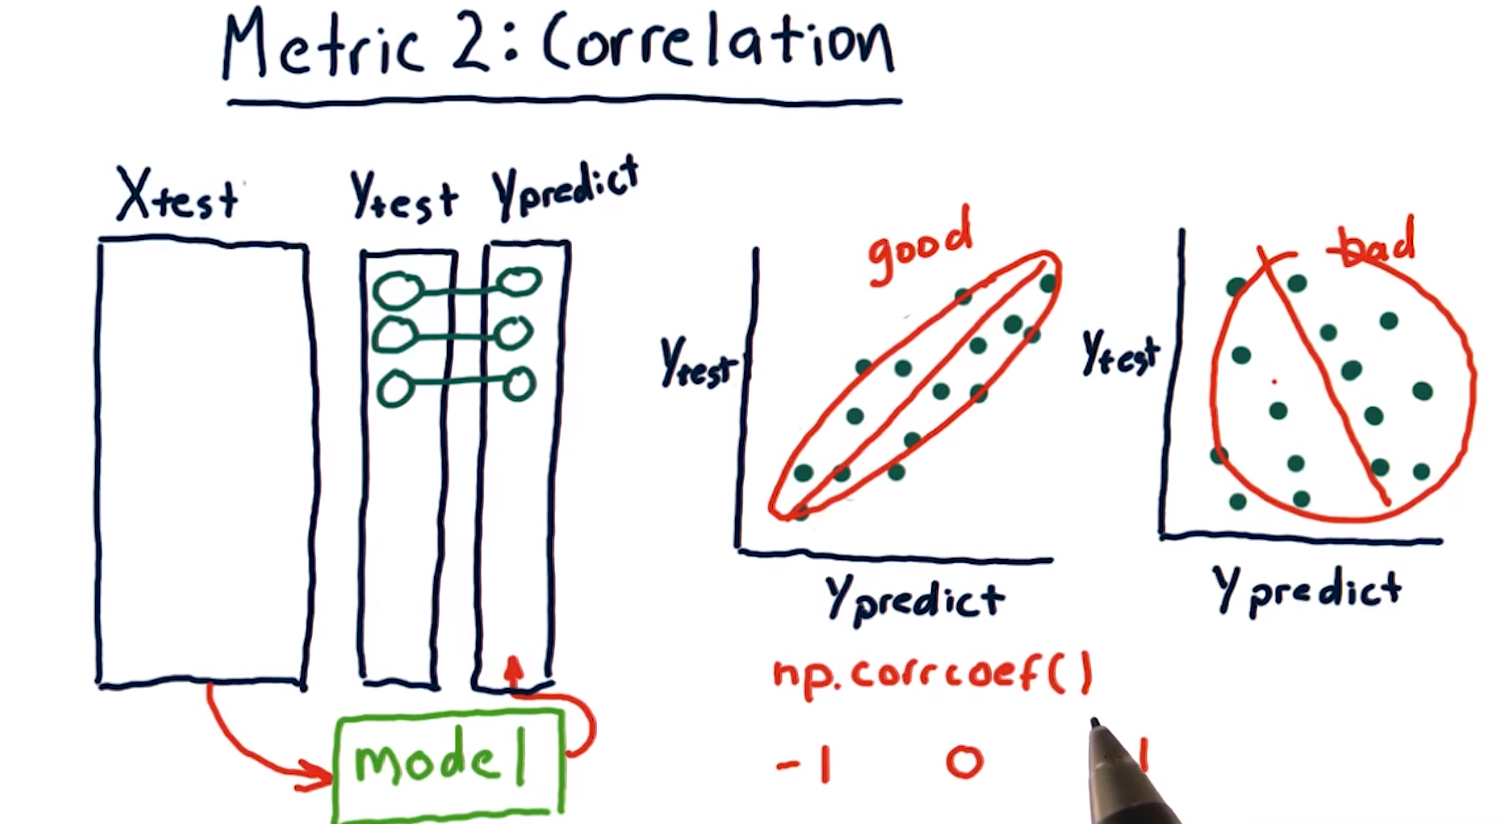 Metric 2: Correlation
Xtest
Ytest
Ypredict
good
Ytest
Ypredict
bad
Ytest
Ypredict
np.corrcoef()
-1 0 1
model